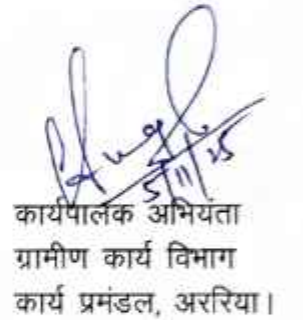 5/11/25
कार्यपालक अभियंता
ग्रामीण कार्य विभाग
कार्य प्रमंडल, अररिया।